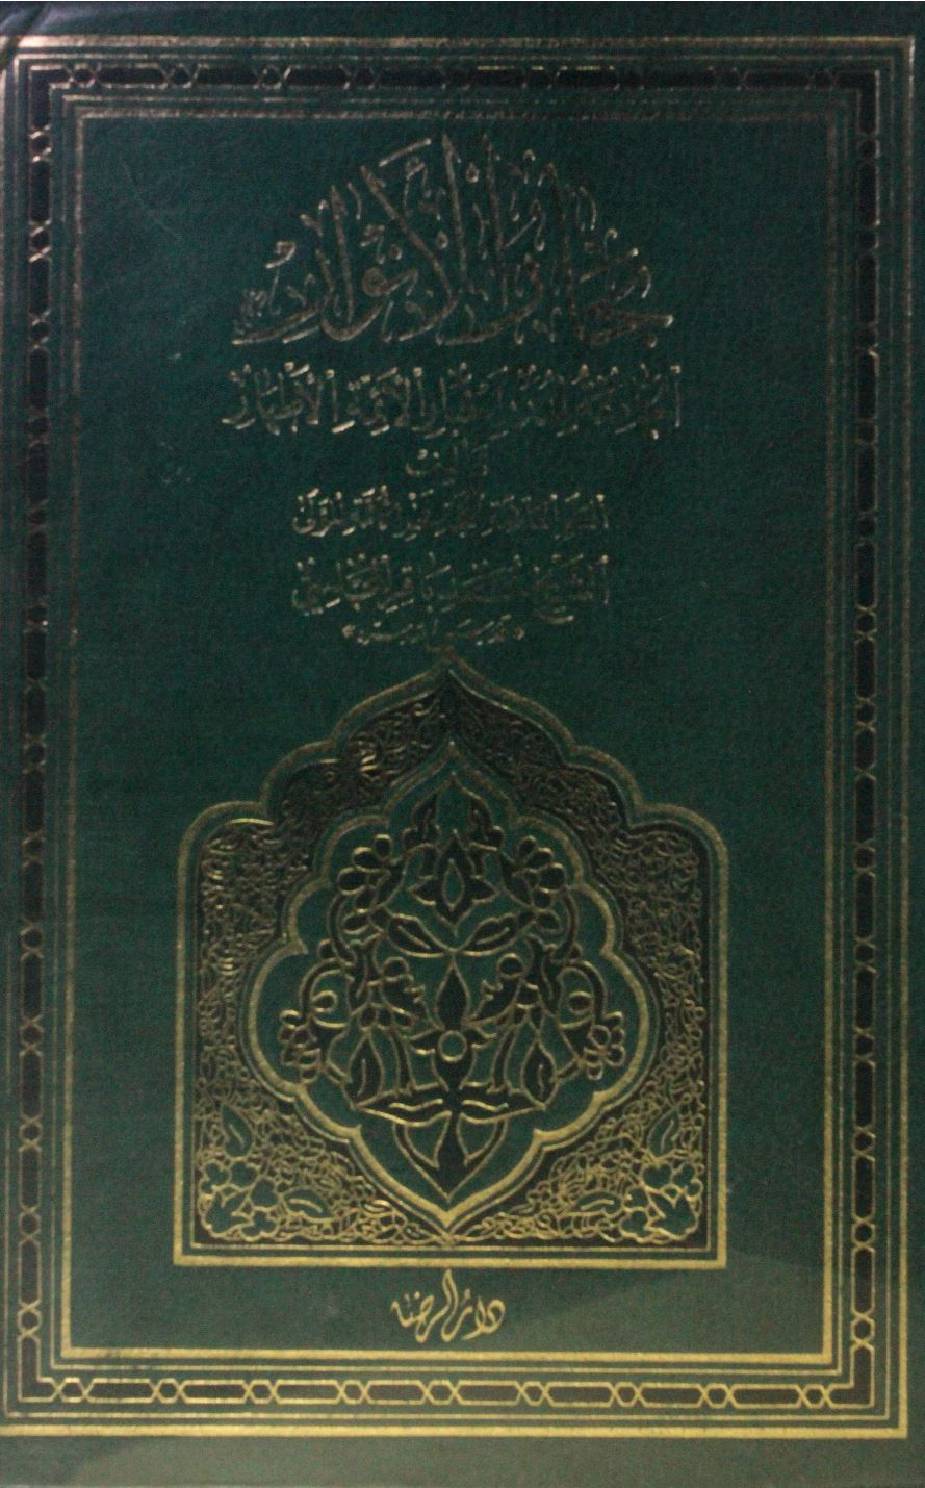 بحار الأنوار
الجامعة لدرر أخبار الأئمة الأطهار
تأليف
العلم العلامة الحجة فخر الأمة المولى
الشيخ محمد باقر المجلسي
قدس الله سره
دار الرضا